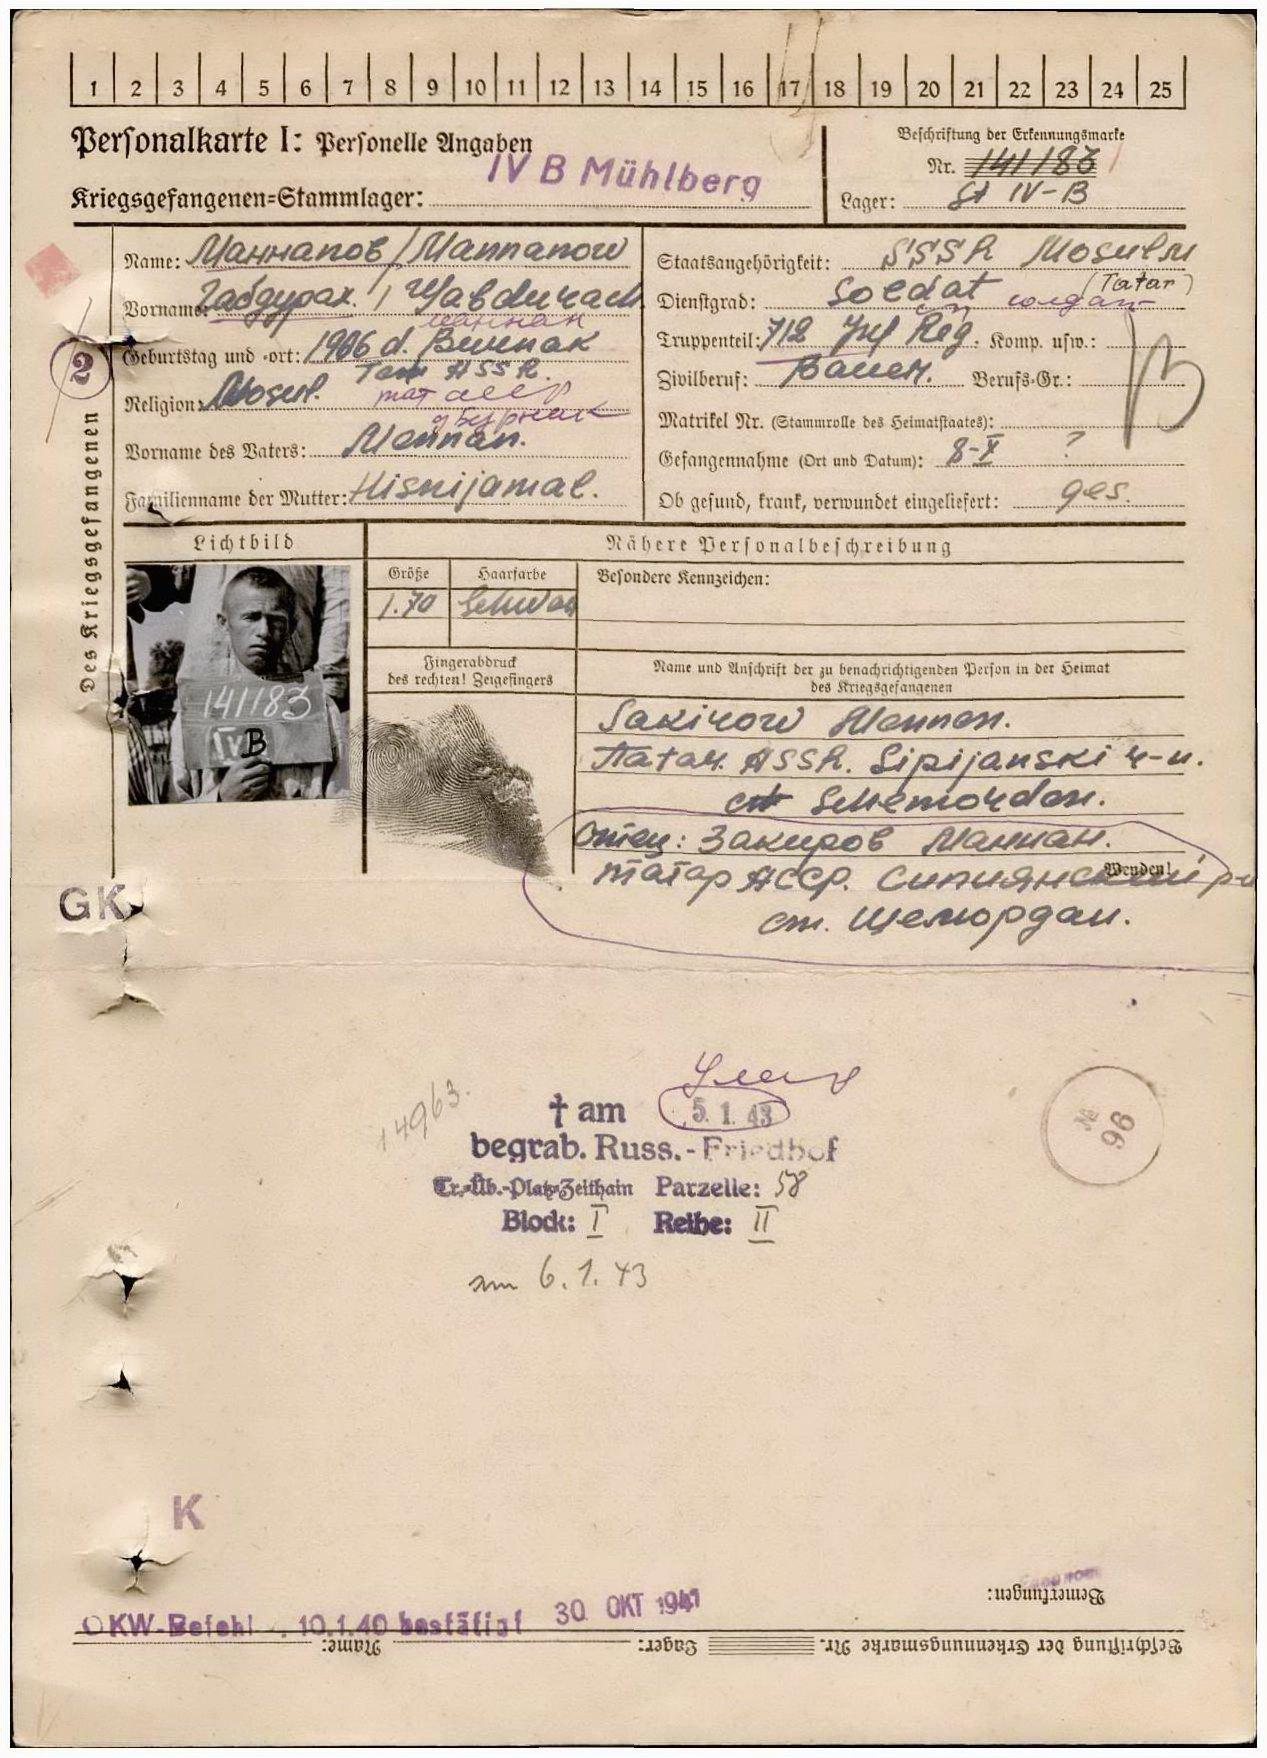 1 2 3 4 5 6 7 8 9 10 11 12 13 14 15 16 17 18 19 20 21 22 23 24 25
Personalkarte I: Personelle Angaben
Beschriftung der Erkennungsmarke
IV B Mühlberg
Nr. 141183
Kriegsgefangenen=Stammlager:
Lager: St IV-B
Des Kriegsgefangenen
2
Name: Маннапов / Mannanow
Vorname: Габдурах.
маннан
Geburtstag und -ort: 1906 d.
Tam ASSR.
Religion: Mosul.
тат ассср
д Бурнак
Vorname des Vaters: Mennan.
Familienname der Mutter: Hisnijamal.
Staatsangehörigkeit: SSSR Mosulm
(Tatar)
Dienstgrad: Soldat солдат
Truppenteil: 712 Inf Reg. Komp. usw.:
Zivilberuf: Bauer. Berufs-Gr.:
Matrikel Nr. (Stammrolle des Heimatstaates):
Gefangennahme (Ort und Datum): 8-X ?
Ob gesund, krank, verwundet eingeliefert: ges.
Lichtbild
Nähere Personalbeschreibung
Größe
Haarfarbe
Besondere Kennzeichen:
1.70
Schwar
141183
IV B
Fingerabdruck
des rechten! Zeigefingers
Name und Anschrift der zu benachrichtigenden Person in der Heimat
des Kriegsgefangenen
Sakirow Mennan.
Tatar. ASSR. Sipijanski r-n.
st Schemordan.
Отец: Закиров Маннан.
татар АССР. Сипиянский р-н
Wenden!
ст. Шемордан.
GK
14963.
† am 5. 1. 43
begrab. Russ.-Friedhof
Tr.=Üb.-Platz=Zeithain Parzelle: 58
Block: I Reihe: II
am 6.1.43
№ 96
K
Bemerkungen:
OKW-Befehl . 10.1.40 bestätigt 30 OKT 1941
Beschriftung der Erkennungsmarke Nr. Lager: Name: